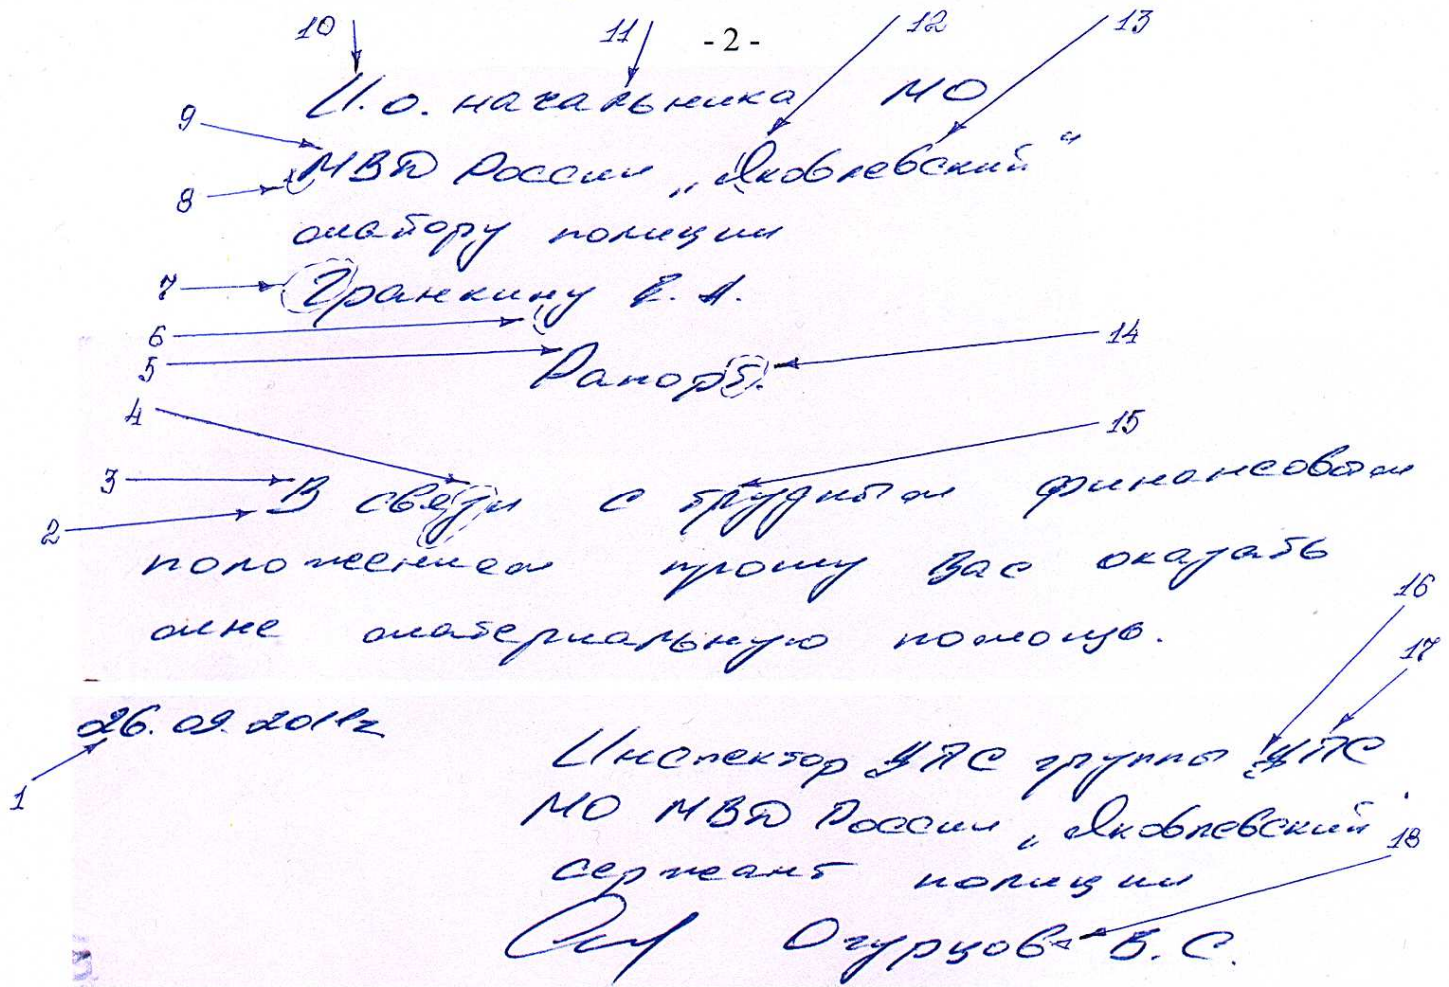 10 11 - 2 - 12 13
И.о. начальника МО
9
МВД России „Яковлевский“
8
майору полиции
7 Гранкину Е. А.
6
5 14
Рапорт.
4
15
3 В связи с трудным финансовым
2
положением прошу Вас оказать
мне материальную помощь.
16
17
26.09.2011г
Инспектор ППС группы ППС
1
МО МВД России „Яковлевский“
18
сержант полиции
Огурцов В. С.